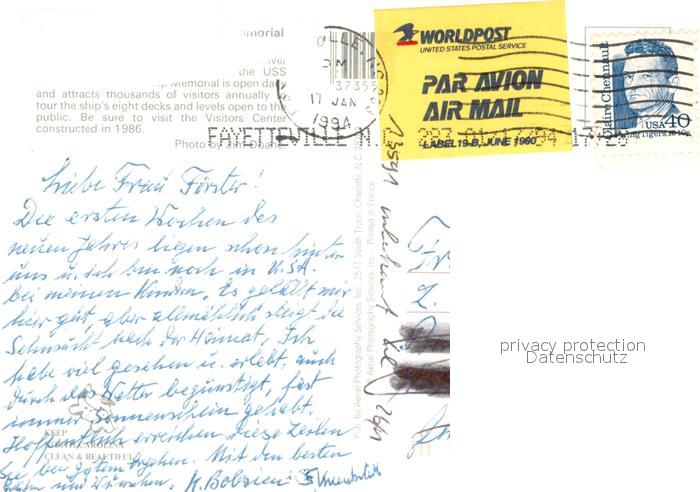 morial
iver
the USS
p Memorial is open daily
and attracts thousands of visitors annually
tour the ship's eight decks and levels open to the
public. Be sure to visit the Visitors Center
constructed in 1986.
Photo by
PM
17 JAN
1994
37359
FAYETTEVILLE N.C. 283 01/17/94 17
WORLDPOST
UNITED STATES POSTAL SERVICE
PAR AVION
AIR MAIL
LABEL 19-B, JUNE 1990
Claire Chennault
USA 40
Flying Tigers
Liebe Frau Förster!
Die ersten Wochen des
neuen Jahres liegen schon hinter
uns u. ich bin noch in USA.
bei meinen Kindern. Es gefällt mir
hier gut aber allmählich steigt die
Sehnsucht nach der Heimat. Ich
habe viel gesehen u. erlebt, auch
durch das Wetter begünstigt, fast
immer Sonnenschein gehabt.
Hoffentlich erreichen diese Zeilen
Sie bei gutem Ergehen. Mit den besten
Grüßen und Wünschen,
KEEP
NORTH CAROLINA
CLEAN & BEAUTIFUL
Pub. by Aerial Photography Services, Inc., 2511 South Tryon, Charlotte, N.C.
Aerial Photography Services, Inc. - Printed in France
privacy protection
Datenschutz